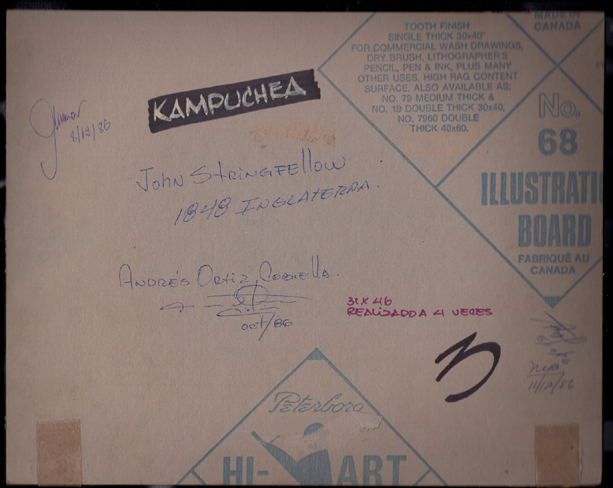 MADE IN
CANADA
TOOTH FINISH
SINGLE THICK 30x40"
FOR COMMERCIAL WASH DRAWINGS,
DRY BRUSH, LITHOGRAPHER'S
PENCIL, PEN & INK, PLUS MANY
OTHER USES. HIGH RAG CONTENT
SURFACE. ALSO AVAILABLE AS:
NO. 79 MEDIUM THICK &
NO. 19 DOUBLE THICK 30x40,
NO. 7960 DOUBLE
THICK 40x60.
KAMPUCHEA
No.
68
ILLUSTRATI
BOARD
FABRIQUÉ AU
CANADA
8/12/86
John Stringfellow
1848 INGLATERRA.
ANDRÉS ORTIZ
OCT/86
31 x 46
REALIZADO A 4 VECES
3
11/12/86
Peterboro
HI-ART